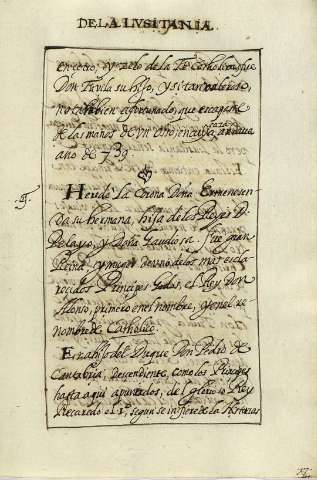 DE LA LUSITANIA.
en celo, y zelo de la Fè Catholica fue
Don Favila su hijo, y si tan valeroso,
no tambien afortunado, que escapase
de las manos de un oso, en cuya
caza
año de 739
Heredo la Corona Doña Ermenesen-
da su hermana, hija de los Reyes D.
Pelayo, y Doña Gaudiosa fue gran
Reina y muger de uno de los mas escla-
recidos Principes Godos, el Rey Don
Alonso, primero en el nombre, y en el re-
nombre de Catholico.
Era hijo del Duque Don Pedro de
Cantabria, descendiente, como los Principes
hasta aqui apuntados, del glorioso Rey
Recaredo el 1º, segun se infiere de las Historias